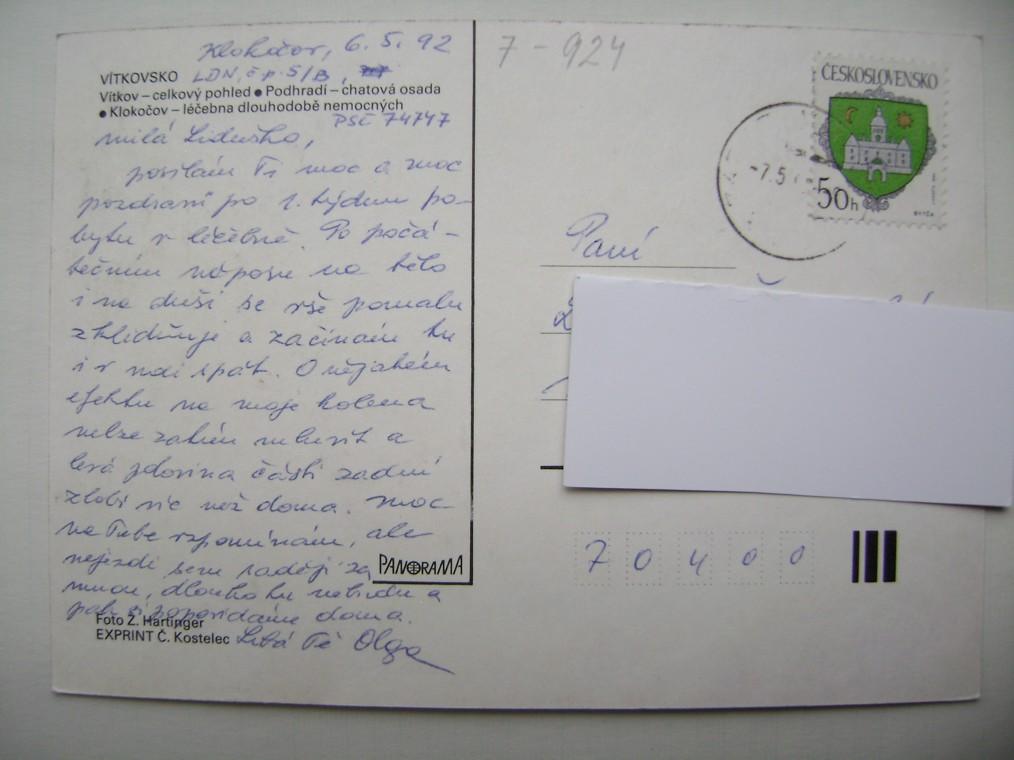 Klokočov, 6. 5. 92
VÍTKOVSKO LDN, č.p. 5/B,
Vítkov – celkový pohled ● Podhradí – chatová osada
● Klokočov – léčebna dlouhodobě nemocných
PSČ 74747
milá Liduško,
posílám Ti moc a moc
pozdravů po 1. týdnu po-
bytu v léčebně. Po počá-
tečním náporu na tělo
i na duši se vše pomalu
zklidňuje a začínám tu
i v noci spát. O nějakém
efektu na moje kolena
nelze zatím mluvit a
levá polovina části zadní
zlobí víc než doma. Moc
na Tebe vzpomínám, ale
nejezdi sem raději za
mnou, dlouho tu nebudu a
pak si popovídáme doma.
Líbá Tě Olga
PANORAMA
Foto Z. Hartinger
EXPRINT Č. Kostelec
7 - 924
ČESKOSLOVENSKO
50h
-7.5
Paní
7 0 4 0 0